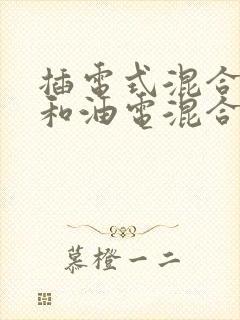 插電式混合
和油電混合
慕橙一二